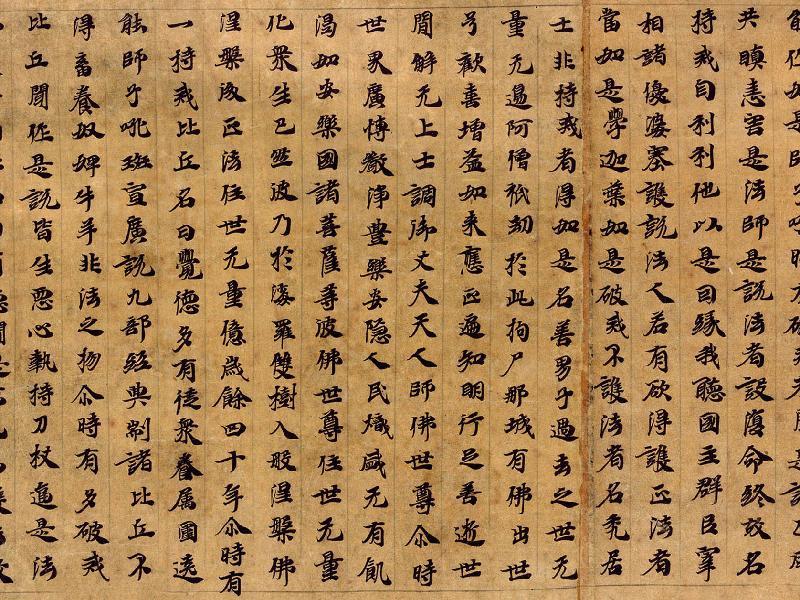 共瞋恚害是法師是說法者設復命終故名
持戒自利利他以是因緣我聽國主群臣宰
相諸優婆塞護說法人若有欲得護正法者
當如是學迦葉如是破戒不護法者名禿居
士非持戒者得如是名善男子過去之世无
量无邊阿僧祇劫於此拘尸那城有佛出世
号歡喜增益如來應正遍知明行足善逝世
間解无上士調御丈夫天人師佛世尊尒時
世界廣博嚴淨豐樂安隱人民熾盛无有飢
渴如安樂國諸菩薩等彼佛世尊住世无量
化衆生已然後乃於娑羅雙樹入般涅槃佛
涅槃後正法住世无量億歲餘四十年尒時有
一持戒比丘名曰覺德多有徒衆眷属圍遶
能師子吼班宣廣說九部經典制諸比丘不
得畜養奴婢牛羊非法之物尒時有多破戒
比丘聞作是說皆生惡心執持刀杖逼是法